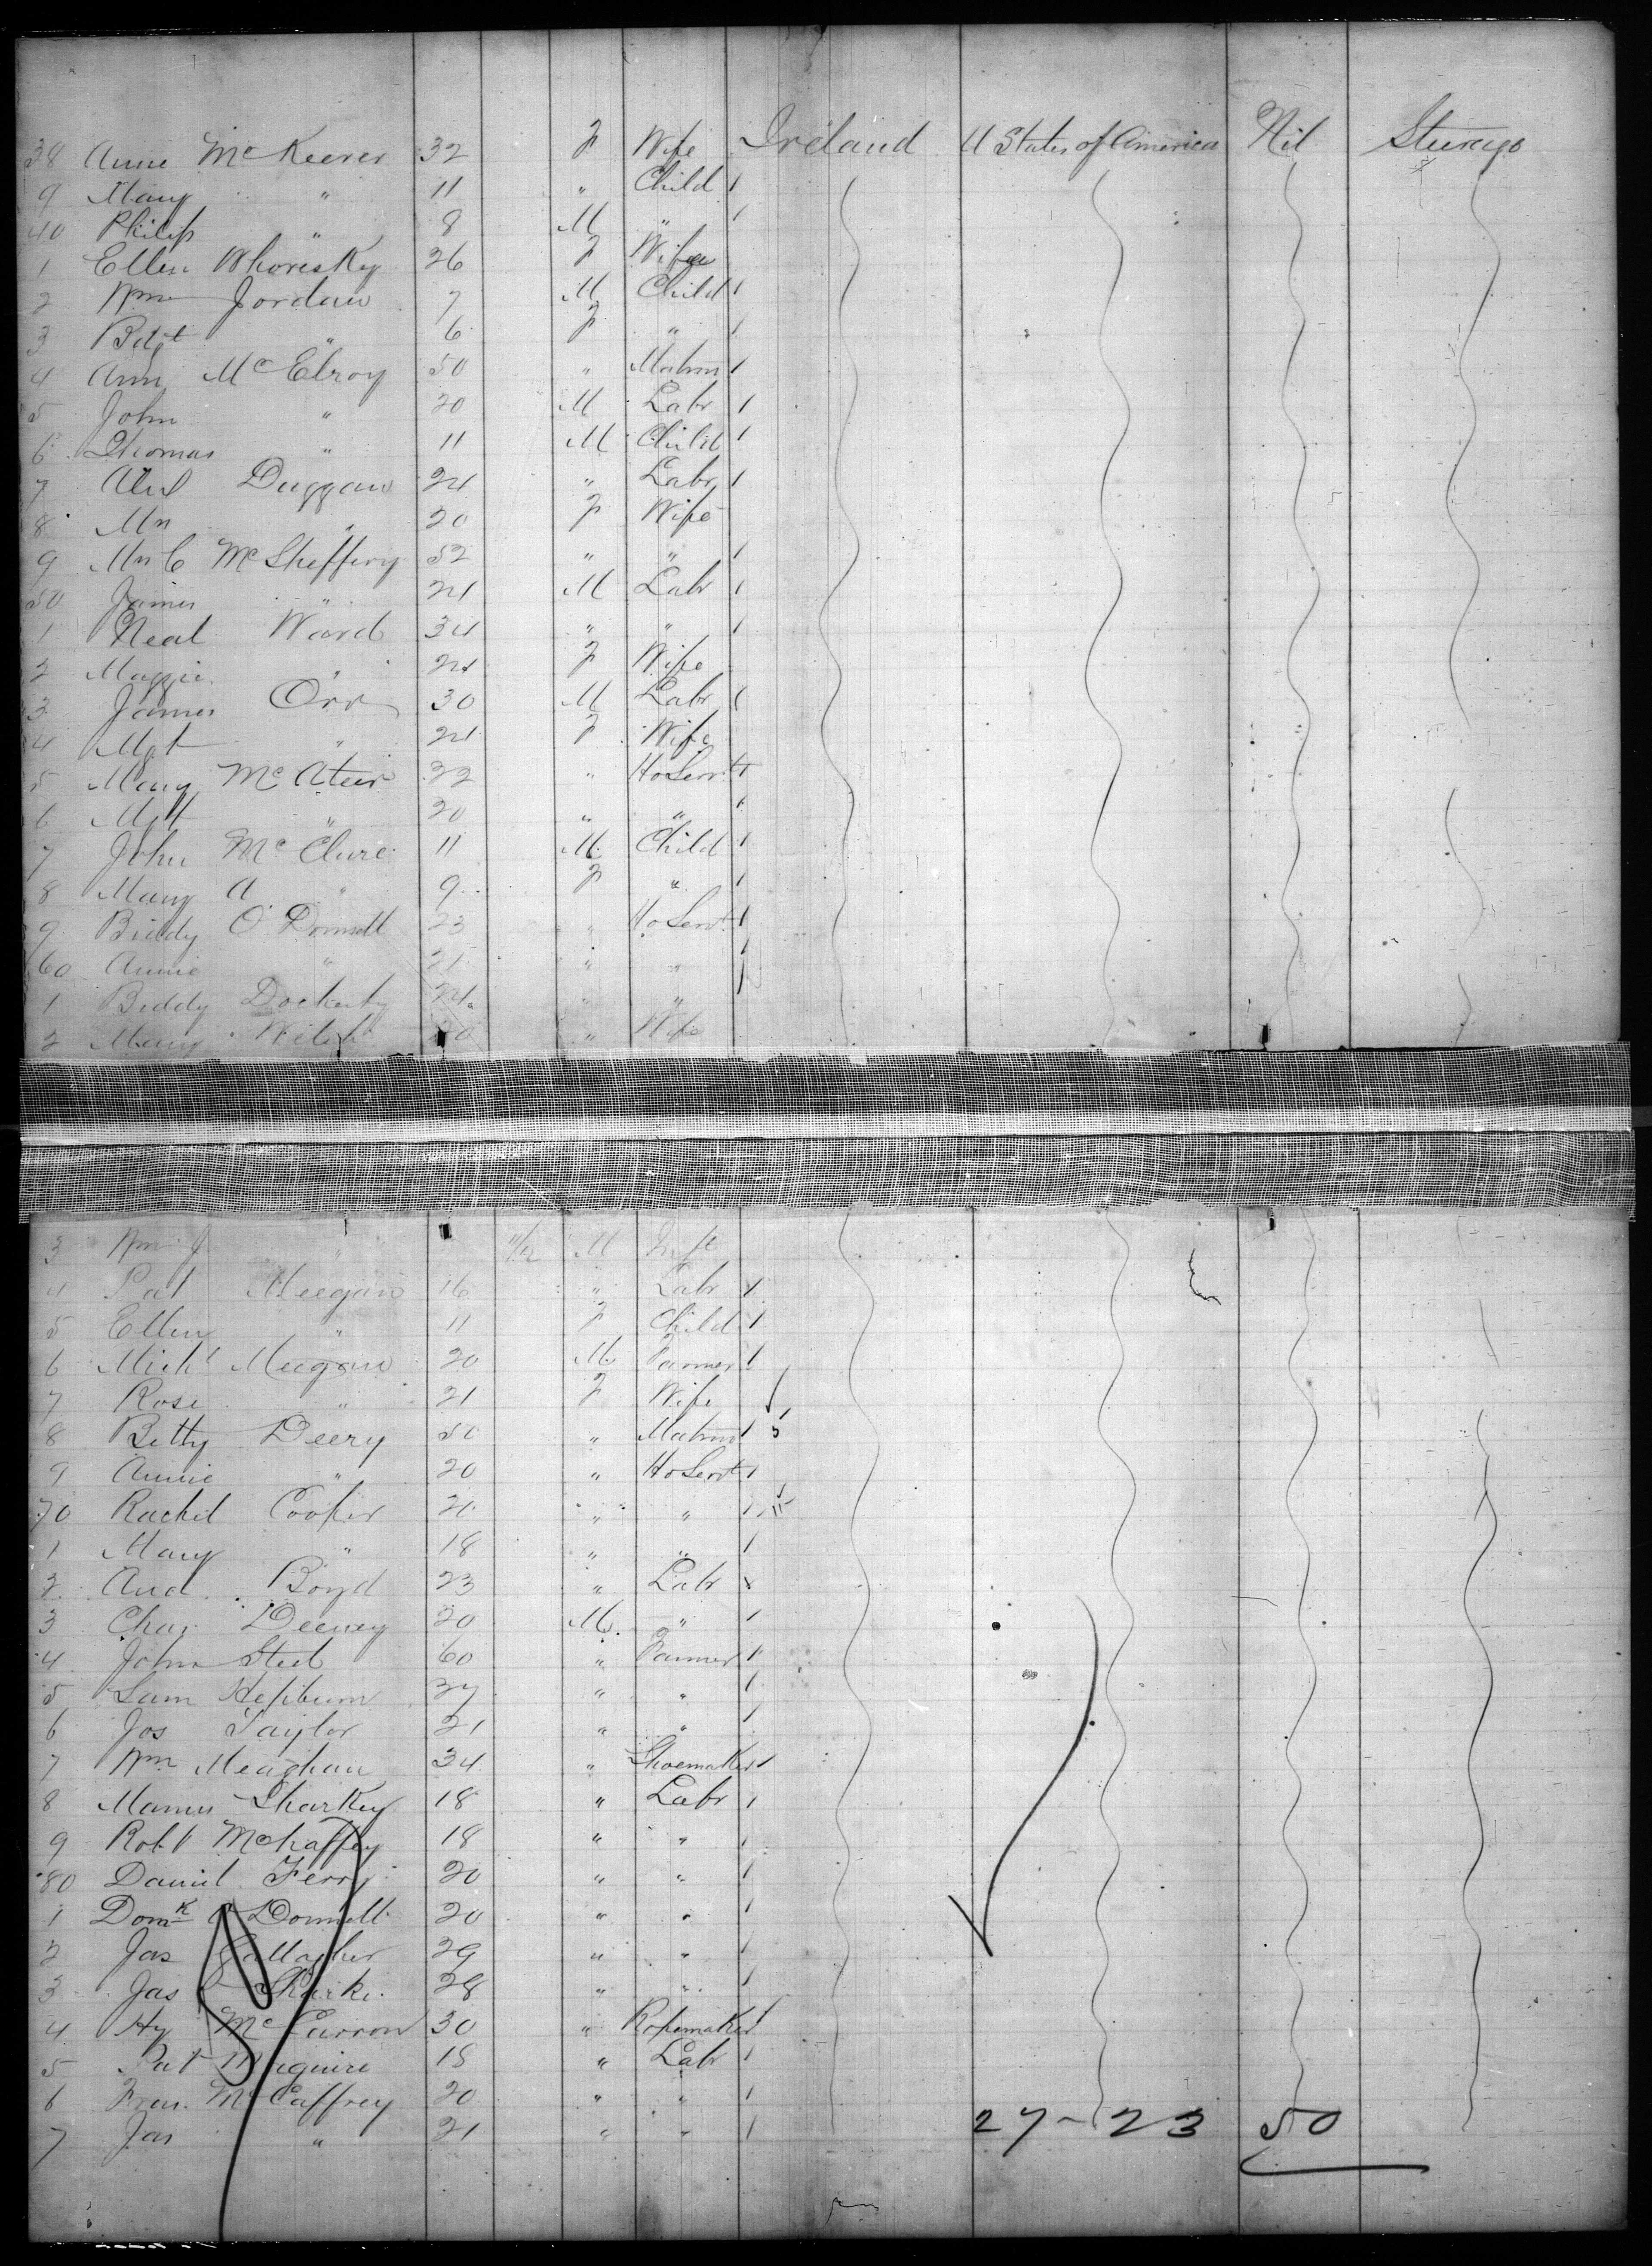 38 Anne McKeever 32 F Wife Ireland U States of America Nil Steerage
9 Mary " 11 " Child 1
40 Philip " 8 M " 1
1 Ellen Whoriskey 26 F Wife
2 Wm Jordan 7 M Child 1
3 Bdgt " 6 F " 1
4 Ann McElroy 50 " Matron 1
5 John " 20 M Labr 1
6 Thomas " 11 M Child 1
7 Duggan 24 " Labr 1
8 " 20 F Wife
9 Mrs C McSheffery 52 " " 1
50 James " 21 M Labr 1
1 Neal Ward 34 " " 1
2 Maggie " 24 F Wife
3 James Orr 30 M Labr 1
4 Mgt " 24 F Wife
5 Mary McAteer 22 " Ho Servt 1
6 " 20 " " 1
7 John McClure 11 M Child 1
8 Mary A " 9 F " 1
9 Biddy O'Donnell 23 " Ho Servt 1
60 Annie " 21 " " 1
1 Biddy Docherty 24 " "
2 Mary 20 " Wife
3 Wm J " 11/12 M Inft
4 Pat Meegan 16 " Labr 1
5 Ellen " 11 F Child 1
6 Michl Meegan 20 M Farmer 1
7 Rose " 21 F Wife
8 Betty Deery 50 " Matron 1
9 Annie " 20 " Ho Servt 1
70 Rachel Cooper 20 " " 1
1 Mary " 18 " " 1
2 And Boyd 23 " Labr x
3 Chas Deeney 20 M " 1
4 John Steel 60 " Farmer 1
5 Sam Hepburn 37 " " 1
6 Jos Taylor 21 " " 1
7 Wm Meaghan 34 " Shoemaker 1
8 Manus Sharkey 18 " Labr 1
9 Robt Mchaffey 18 " " 1
80 Daniel Ferry 20 " " 1
1 Domk O'Donnell 20 " " 1
2 Jas Gallagher 29 " " 1
3 Jas 28 " " 1
4 Hy McCarron 30 " Ropemaker 1
5 Pat Maguire 18 " Labr 1
6 Fran. McCaffrey 20 " " 1
7 Jas " 21 " " 1
27 - 23 50